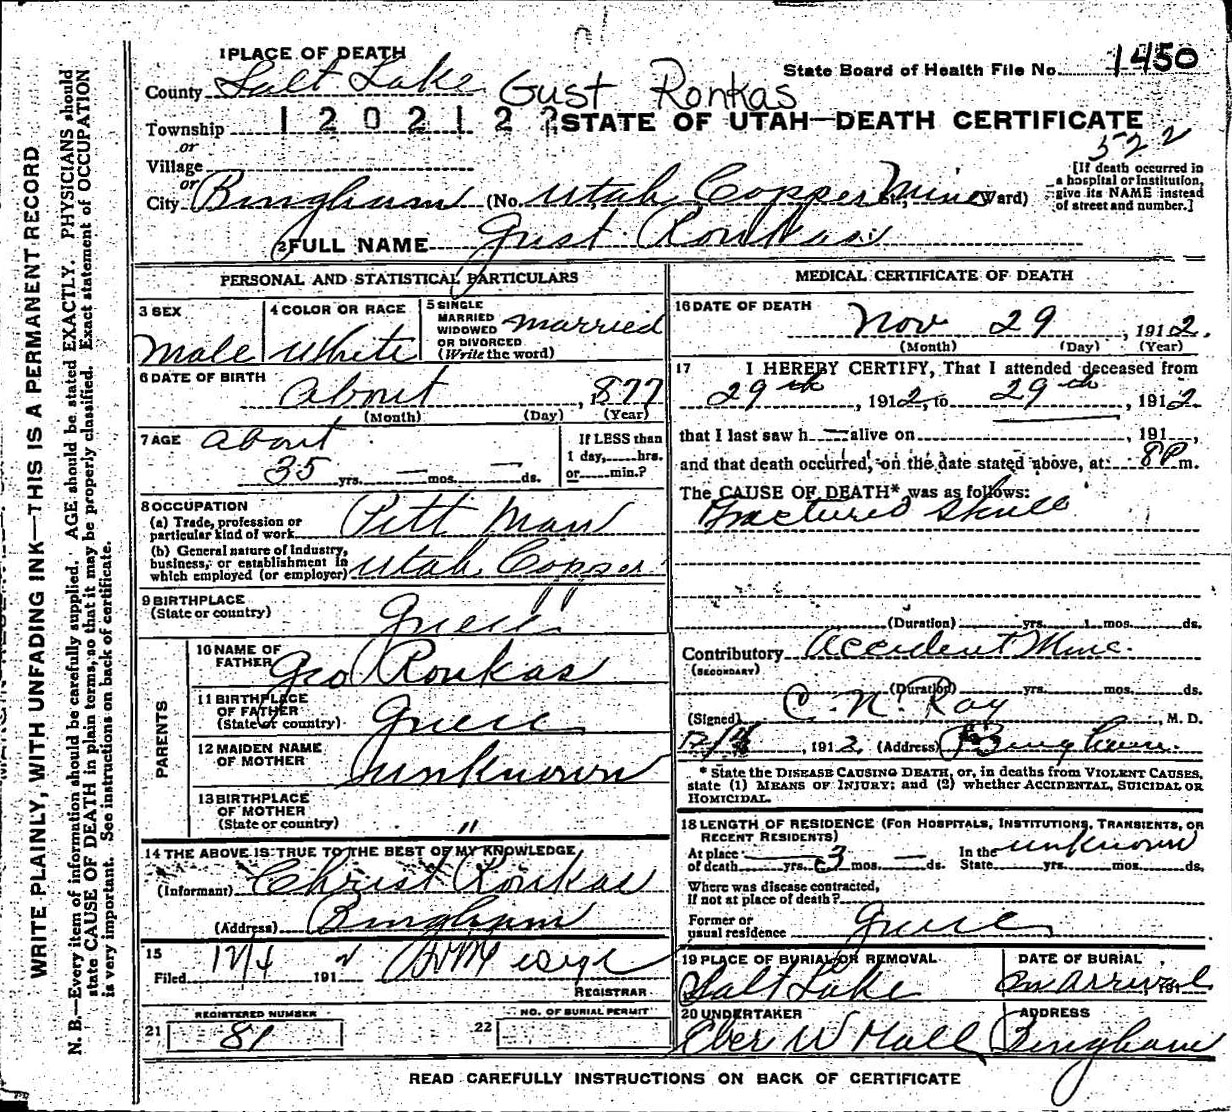 1 PLACE OF DEATH
County Salt Lake
Gust Ronkas
State Board of Health File No. 1450
Township
1 2 0 2 1 2 2
STATE OF UTAH—DEATH CERTIFICATE
or
Village
522
or
City Bingham (No. Utah Copper Mine St.; Ward)
[If death occurred in
a hospital or institution,
give its NAME instead
of street and number.]
2 FULL NAME Gust Ronkas
WRITE PLAINLY, WITH UNFADING INK—THIS IS A PERMANENT RECORD
N. B.—Every item of information should be carefully supplied. AGE should be stated EXACTLY. PHYSICIANS should
state CAUSE OF DEATH in plain terms, so that it may be properly classified. Exact statement of OCCUPATION
is very important. See instructions on back of certificate.
PERSONAL AND STATISTICAL PARTICULARS
3 SEX
Male
4 COLOR OR RACE
White
5 SINGLE
MARRIED
WIDOWED
OR DIVORCED
(Write the word)
married
6 DATE OF BIRTH
about , 1877
(Month) (Day) (Year)
7 AGE
about
35 yrs. — mos. — ds.
If LESS than
1 day,......hrs.
or......min.?
8 OCCUPATION
(a) Trade, profession or
particular kind of work Pitt Man
(b) General nature of Industry,
business, or establishment in
which employed (or employer) Utah Copper
9 BIRTHPLACE
(State or country) Greece
PARENTS
10 NAME OF
FATHER Geo Ronkas
11 BIRTHPLACE
OF FATHER
(State or country) Greece
12 MAIDEN NAME
OF MOTHER unknown
13 BIRTHPLACE
OF MOTHER
(State or country) "
14 THE ABOVE IS TRUE TO THE BEST OF MY KNOWLEDGE
(Informant) Christ Ronkas
(Address) Bingham
15
Filed 12/4 191 2
REGISTRAR
REGISTERED NUMBER
21 81
NO. OF BURIAL PERMIT
22
MEDICAL CERTIFICATE OF DEATH
16 DATE OF DEATH
Nov 29 , 1912.
(Month) (Day) (Year)
17 I HEREBY CERTIFY, That I attended deceased from
29th , 1912, to 29th , 1912
that I last saw h — alive on , 191 ,
and that death occurred, on the date stated above, at 8P m.
The CAUSE OF DEATH* was as follows:
Fractured Skull
(Duration) yrs. mos. ds.
Contributory Accident Mine.
(SECONDARY)
(Duration) yrs. mos. ds.
(Signed) C. N. Ray , M. D.
, 1912, (Address) Bingham.
* State the DISEASE CAUSING DEATH, or, in deaths from VIOLENT CAUSES,
state (1) MEANS OF INJURY; and (2) whether ACCIDENTAL, SUICIDAL OR
HOMICIDAL.
18 LENGTH OF RESIDENCE (FOR HOSPITALS, INSTITUTIONS, TRANSIENTS, OR
RECENT RESIDENTS)
At place
of death — yrs. 3 mos. — ds.
In the
State yrs. mos. ds.
unknown
Where was disease contracted,
if not at place of death?
Former or
usual residence Greece
19 PLACE OF BURIAL OR REMOVAL
Salt Lake
DATE OF BURIAL
On arrival, 191
20 UNDERTAKER
Eber W Hall
ADDRESS
Bingham
READ CAREFULLY INSTRUCTIONS ON BACK OF CERTIFICATE